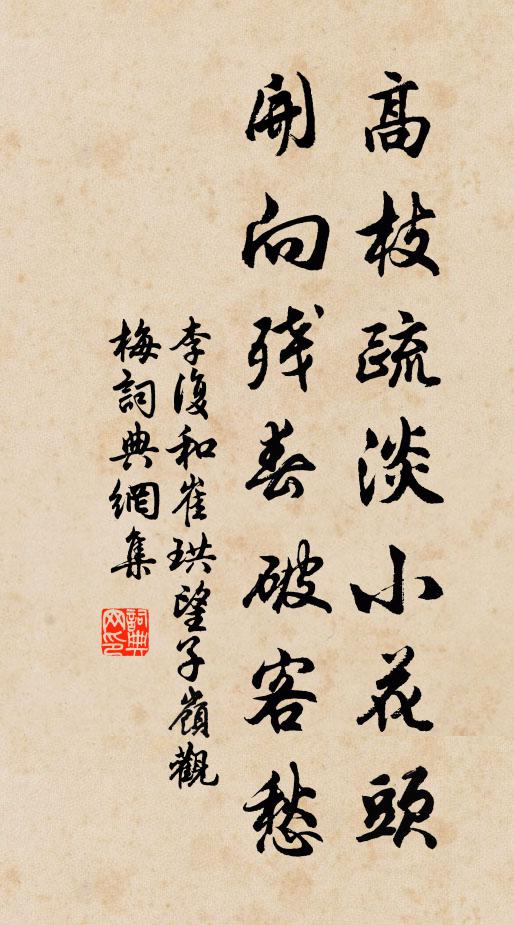 高枝疏淡小花頭
開向残春破客愁
李復和崔珙望子嶺觀
梅詞典網集
詞典网印